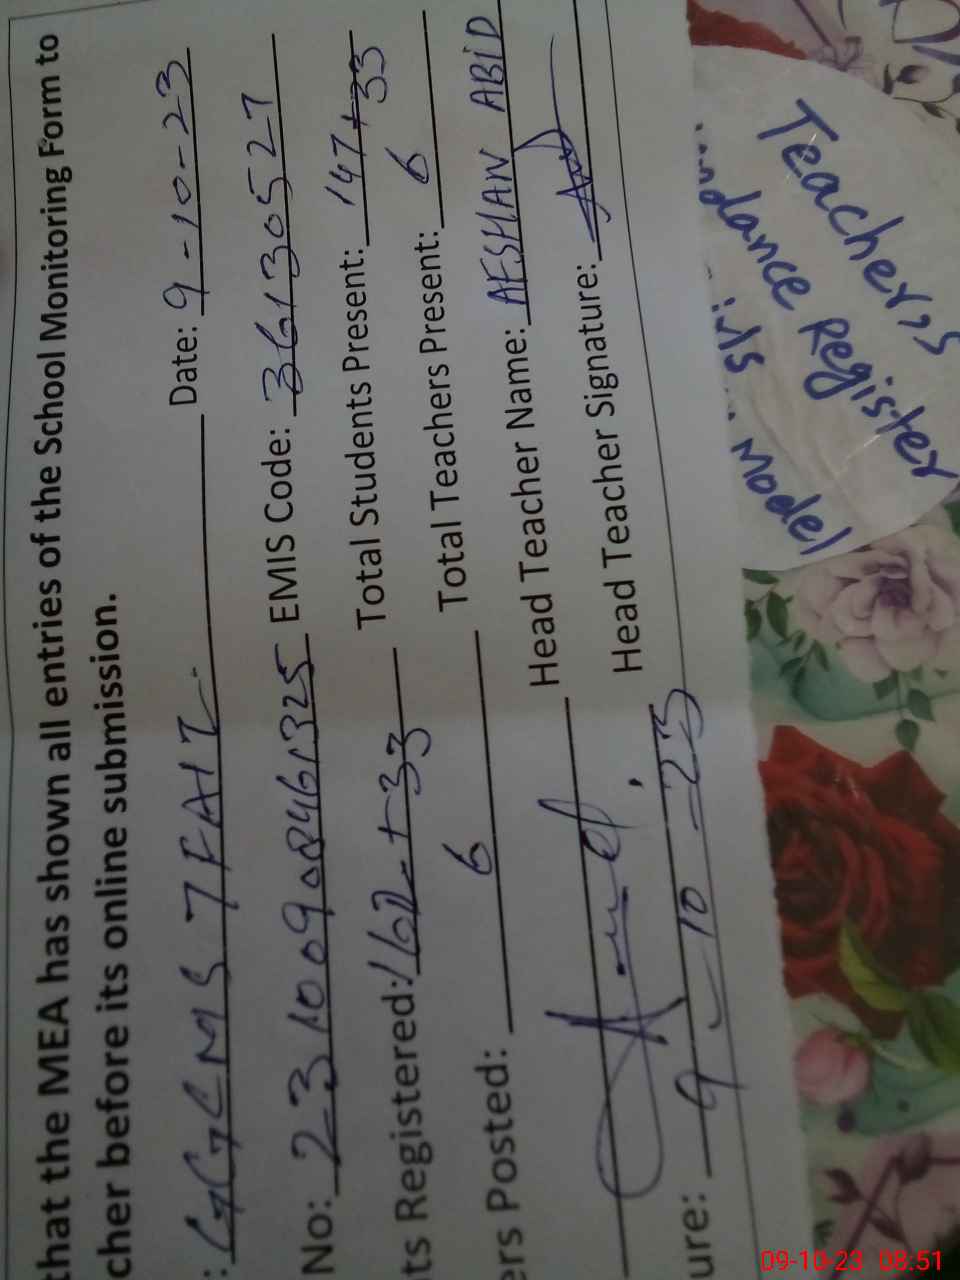 that the MEA has shown all entries of the School Monitoring Form to
cher before its online submission.
: GGCMS 7 FAIZ Date: 9-10-23
No: 23100908461325 EMIS Code: 36130527
ts Registered: 162+33 Total Students Present: 147+33
ers Posted: 6 Total Teachers Present: 6
Head Teacher Name: AFSHAN ABID
Head Teacher Signature:
ure: 9-10-23
Teacher,s
ndance Register
irls model
09-10-23 08:51